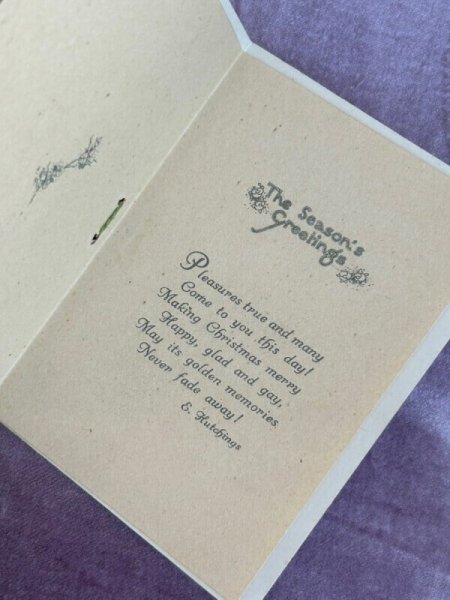 The Season's
Greetings
Pleasures true and many
Come to you this day!
Making Christmas merry
Happy, glad and gay,
May its golden memories
Never fade away!
E. Hutchings